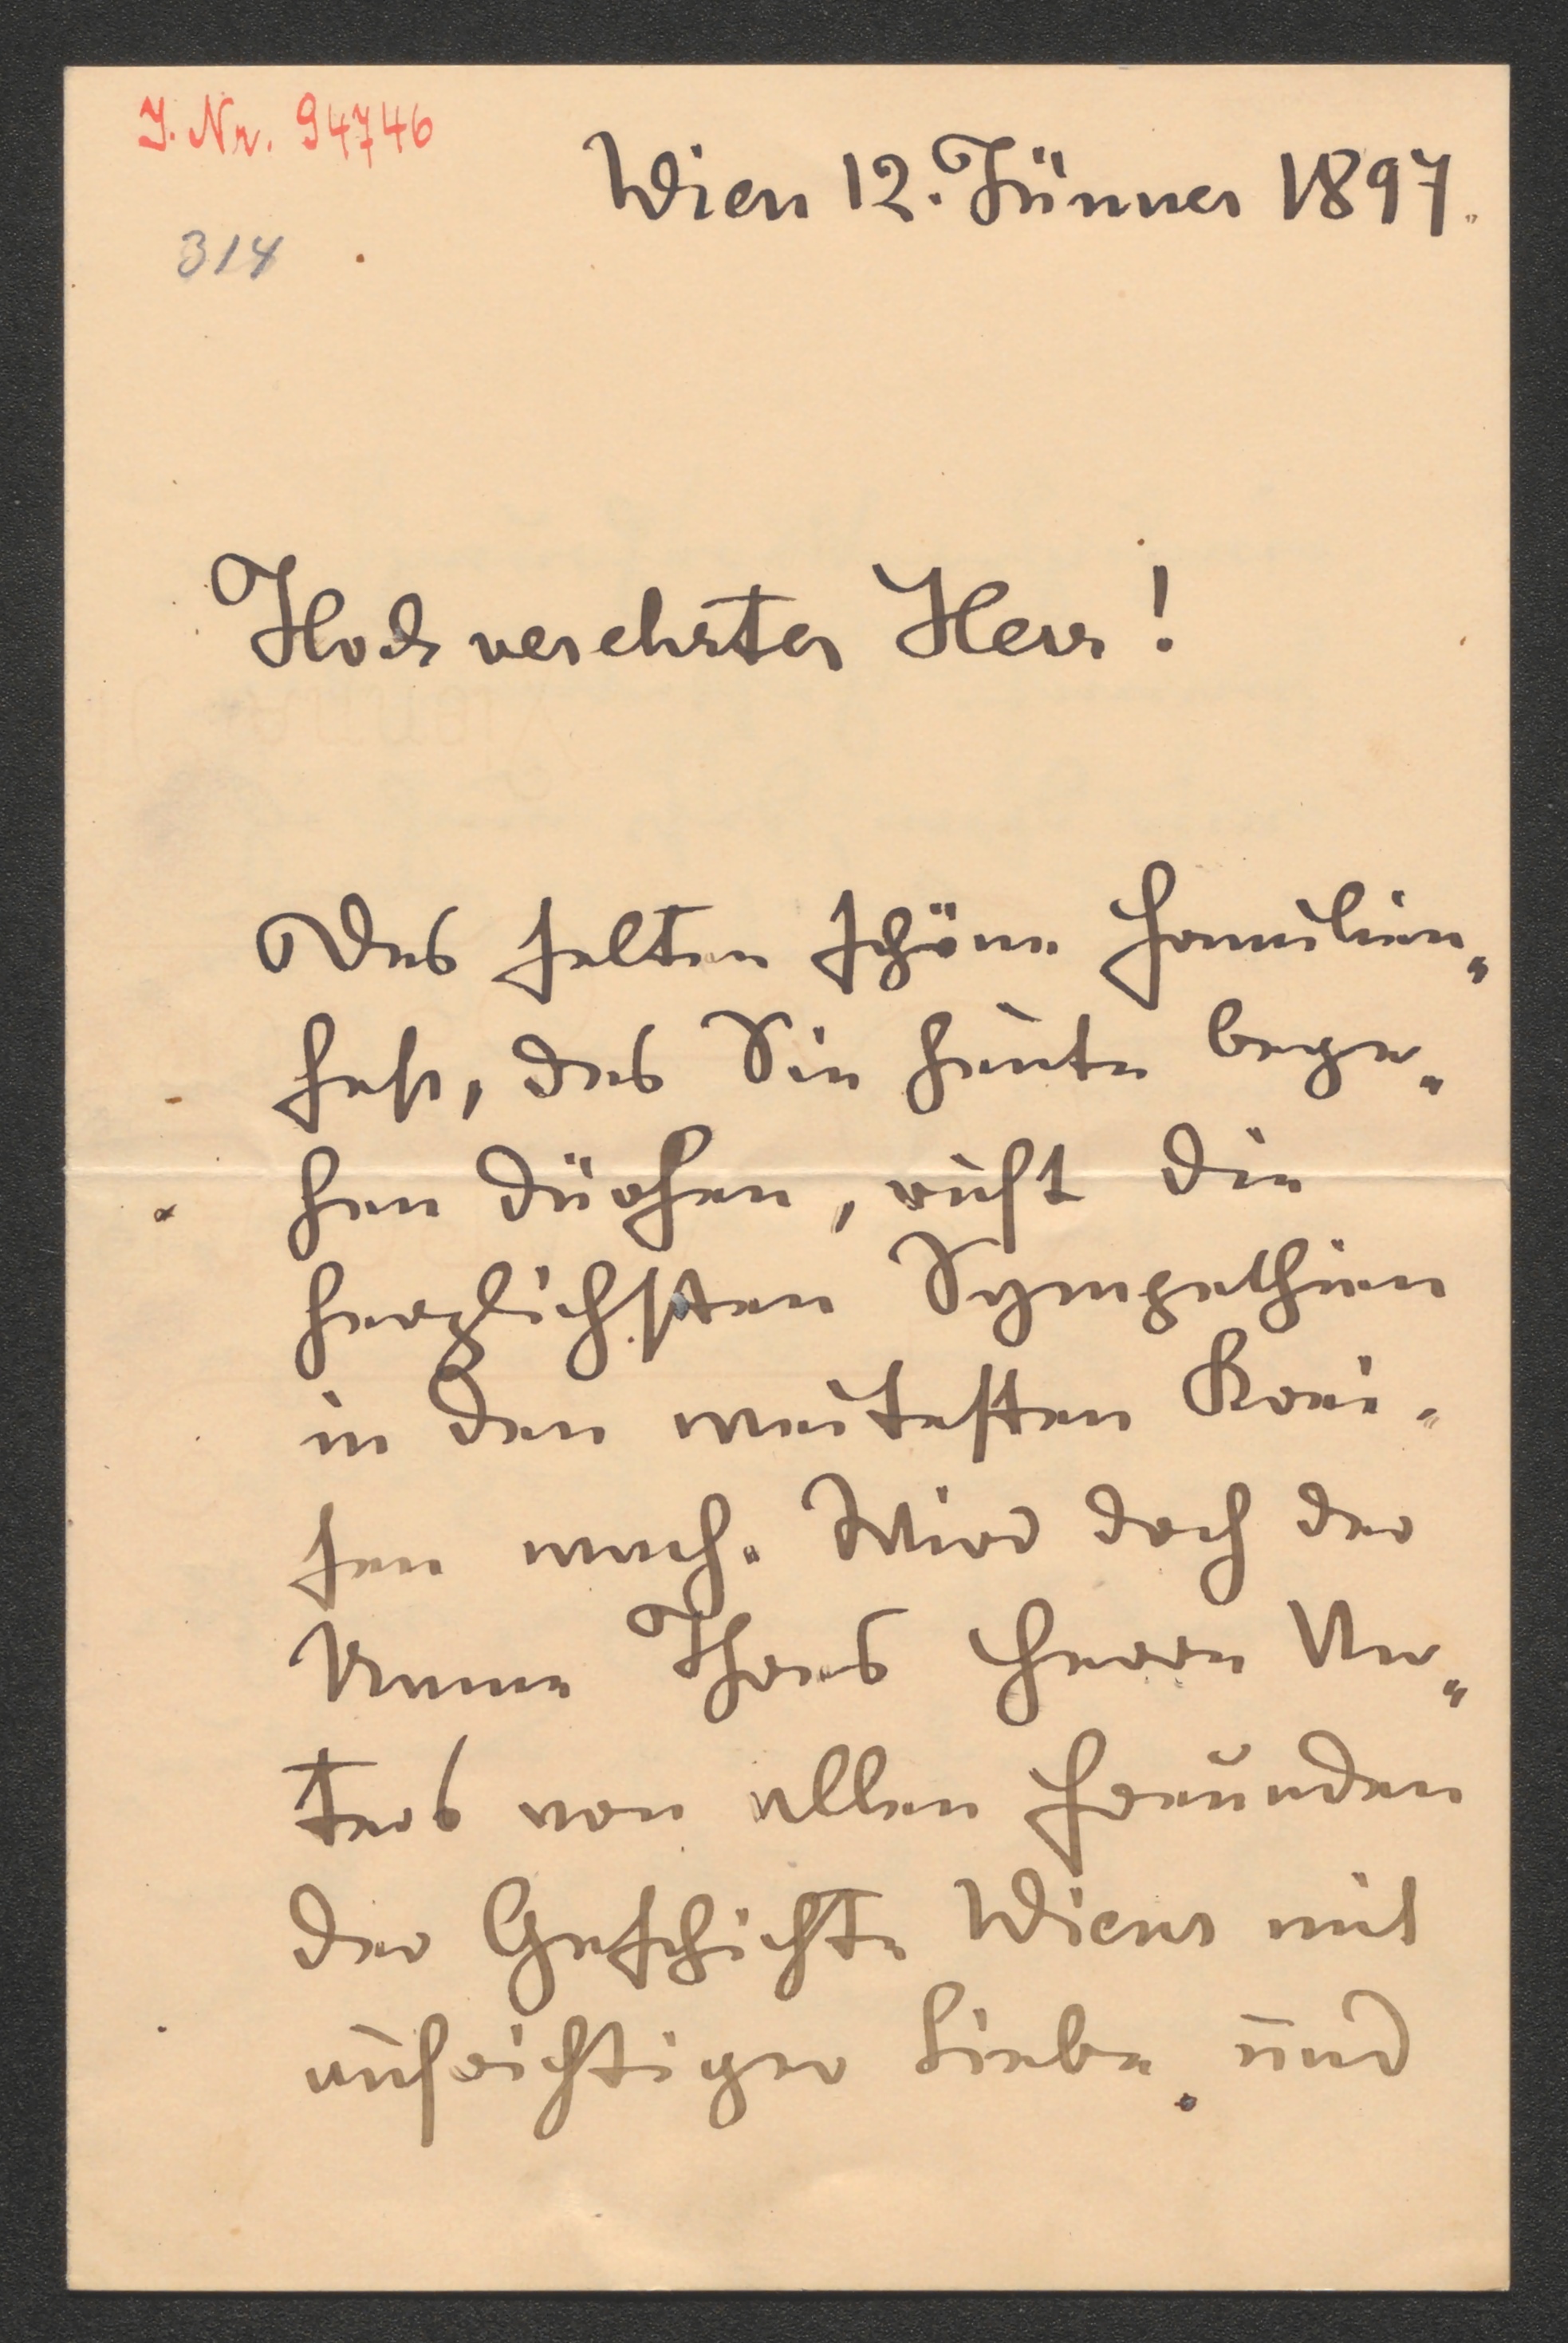 J. Nr. 94746
Wien 12. Jänner 1897.
314
Hochverehrter Herr!
Das selten schöne Familien„
fest, das Sie heute bege„
hen dürfen, ruft die
herzlichsten Sympathien
in den weitesten Krei„
sen wach. Wird doch der
Name Ihres Herrn Va„
ters von allen Freunden
der Geschichte Wiens mit
aufrichtiger Liebe und